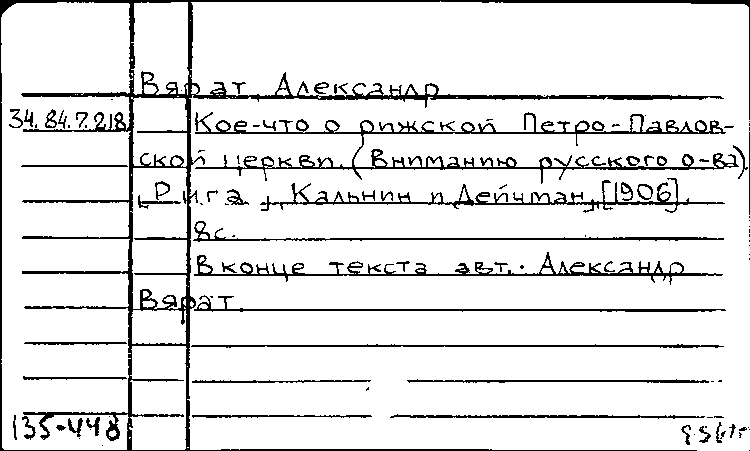 Вярат, Александр
34.84.7.218 Кое-что о рижской Петро-Павлов-
ской церкви. (Вниманию русского о-ва).
[Рига], Кальнин и Дейчман, [1906].
8с.
В конце текста авт.: Александр
Вярат.
135-448